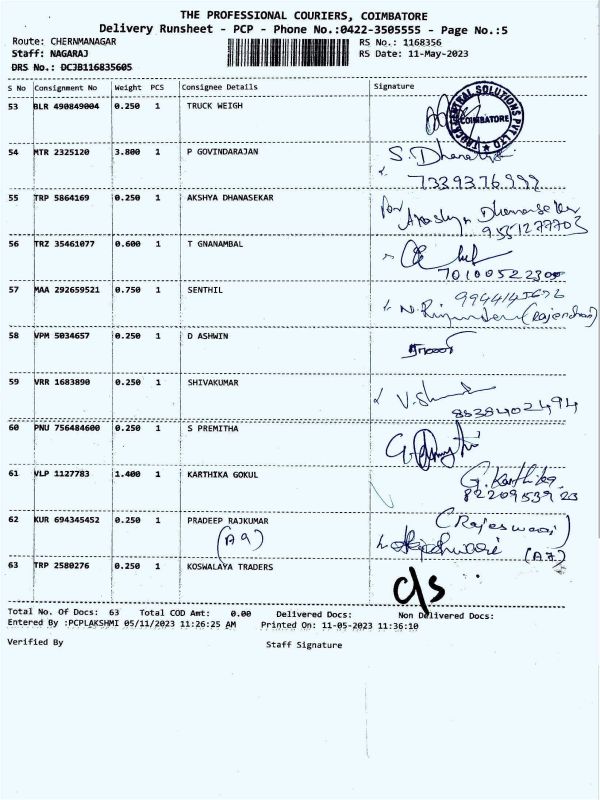 THE PROFESSIONAL COURIERS, COIMBATORE
Delivery Runsheet - PCP - Phone No.:0422-3505555 - Page No.:5
Route: CHERNMANAGAR RS No.: 1168356
Staff: NAGARAJ RS Date: 11-May-2023
DRS No.: DCJB116835605
S No Consignment No Weight PCS Consignee Details Signature
53 BLR 490849004 0.250 1 TRUCK WEIGH
COIMBATORE
54 MTR 2325120 3.800 1 P GOVINDARAJAN
7339376999
55 TRP 5864169 0.250 1 AKSHYA DHANASEKAR
For
9551277703
56 TRZ 35461077 0.600 1 T GNANAMBAL
57 MAA 292659521 0.750 1 SENTHIL
(Rajendran)
58 VPM 5034657 0.250 1 D ASHWIN
59 VRR 1683890 0.250 1 SHIVAKUMAR
60 PNU 756484600 0.250 1 S PREMITHA
61 VLP 1127783 1.400 1 KARTHIKA GOKUL
G. Karthika
8220953923
62 KUR 694345452 0.250 1 PRADEEP RAJKUMAR
(Rajeswari)
(A9)
(A7)
63 TRP 2580276 0.250 1 KOSWALAYA TRADERS
c/s
Total No. Of Docs: 63 Total COD Amt: 0.00 Delivered Docs: Non Delivered Docs:
Entered By :PCPLAKSHMI 05/11/2023 11:26:25 AM Printed On: 11-05-2023 11:36:10
Verified By Staff Signature